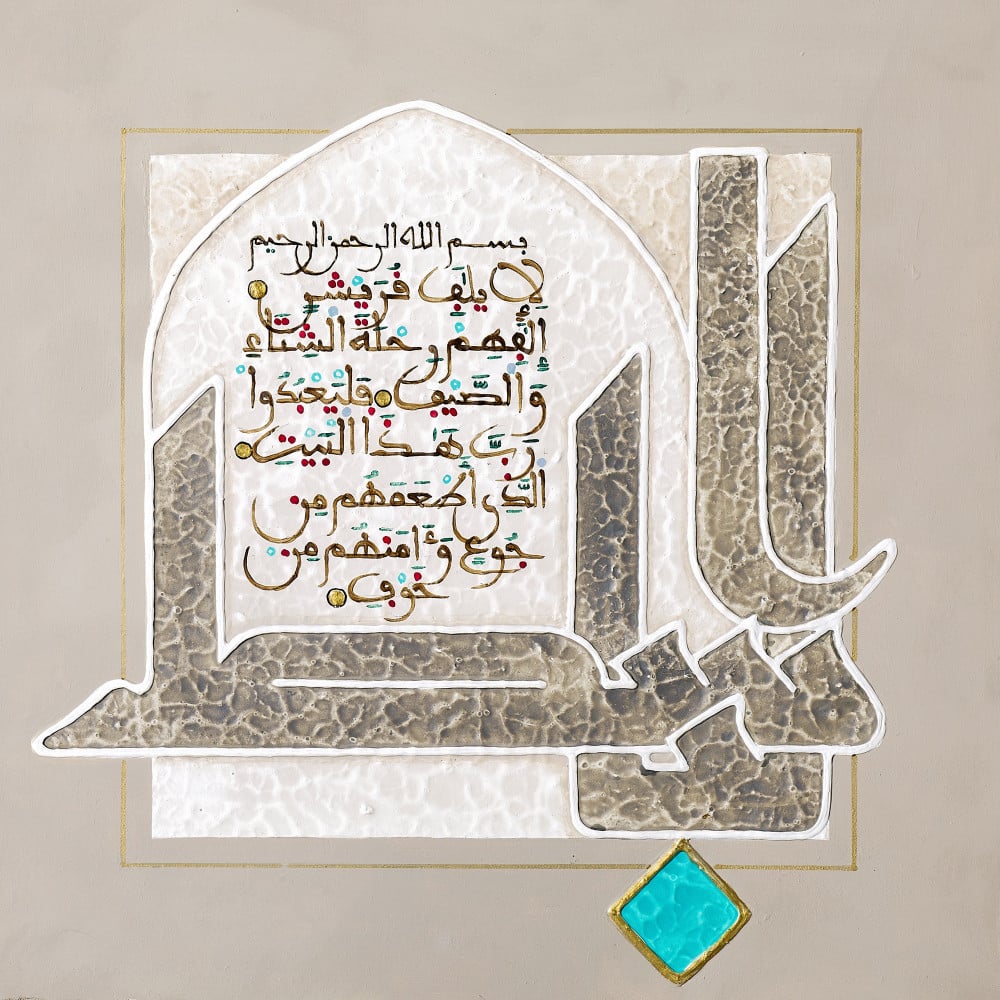 بسم الله الرحمن الرحيم
لِإِيلَٰفِ قُرَيْشٍ
إِۦلَٰفِهِمْ رِحْلَةَ الشِّتَاءِ
وَالصَّيْفِ فَلْيَعْبُدُوا
رَبَّ هَٰذَا الْبَيْتِ
الَّذِي أَطْعَمَهُم مِن
جُوعٍ وَءَامَنَهُم مِنْ
خَوْفٍ